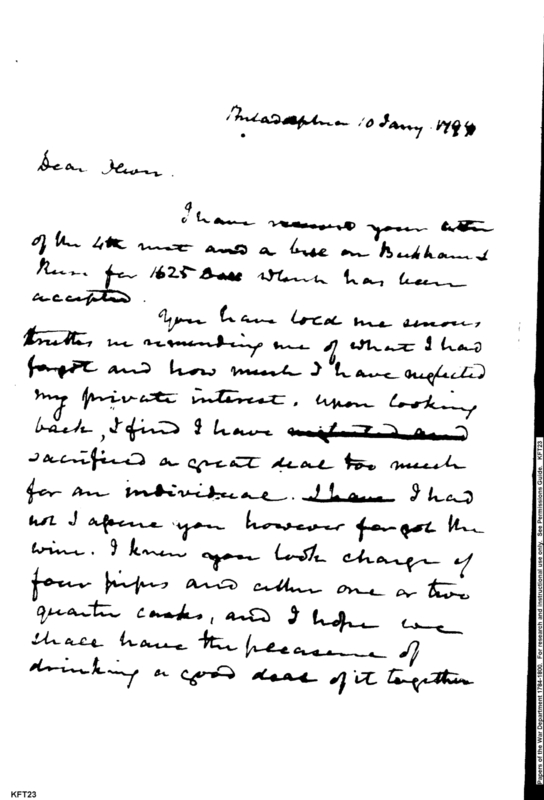 Philadelphia 10 Jany. 179
Dear
I have received your letter
of the 4th inst and a bill on
for 1625 Doll which has been
accepted.
You have told me serious
truths in reminding me of what I had
forgot and how much I have neglected
my private interest. Upon looking
back, I find I have neglected and
sacrificed a great deal too much
for an individual. I have I had
not I assure you however forgot the
wine. I knew you took charge of
four pipes and either one or two
quarter casks, and I hope we
shall have the pleasure of
drinking a good deal of it together
KFT23
Papers of the War Department 1784-1800. For research and instructional use only. See Permissions Guide. KFT23